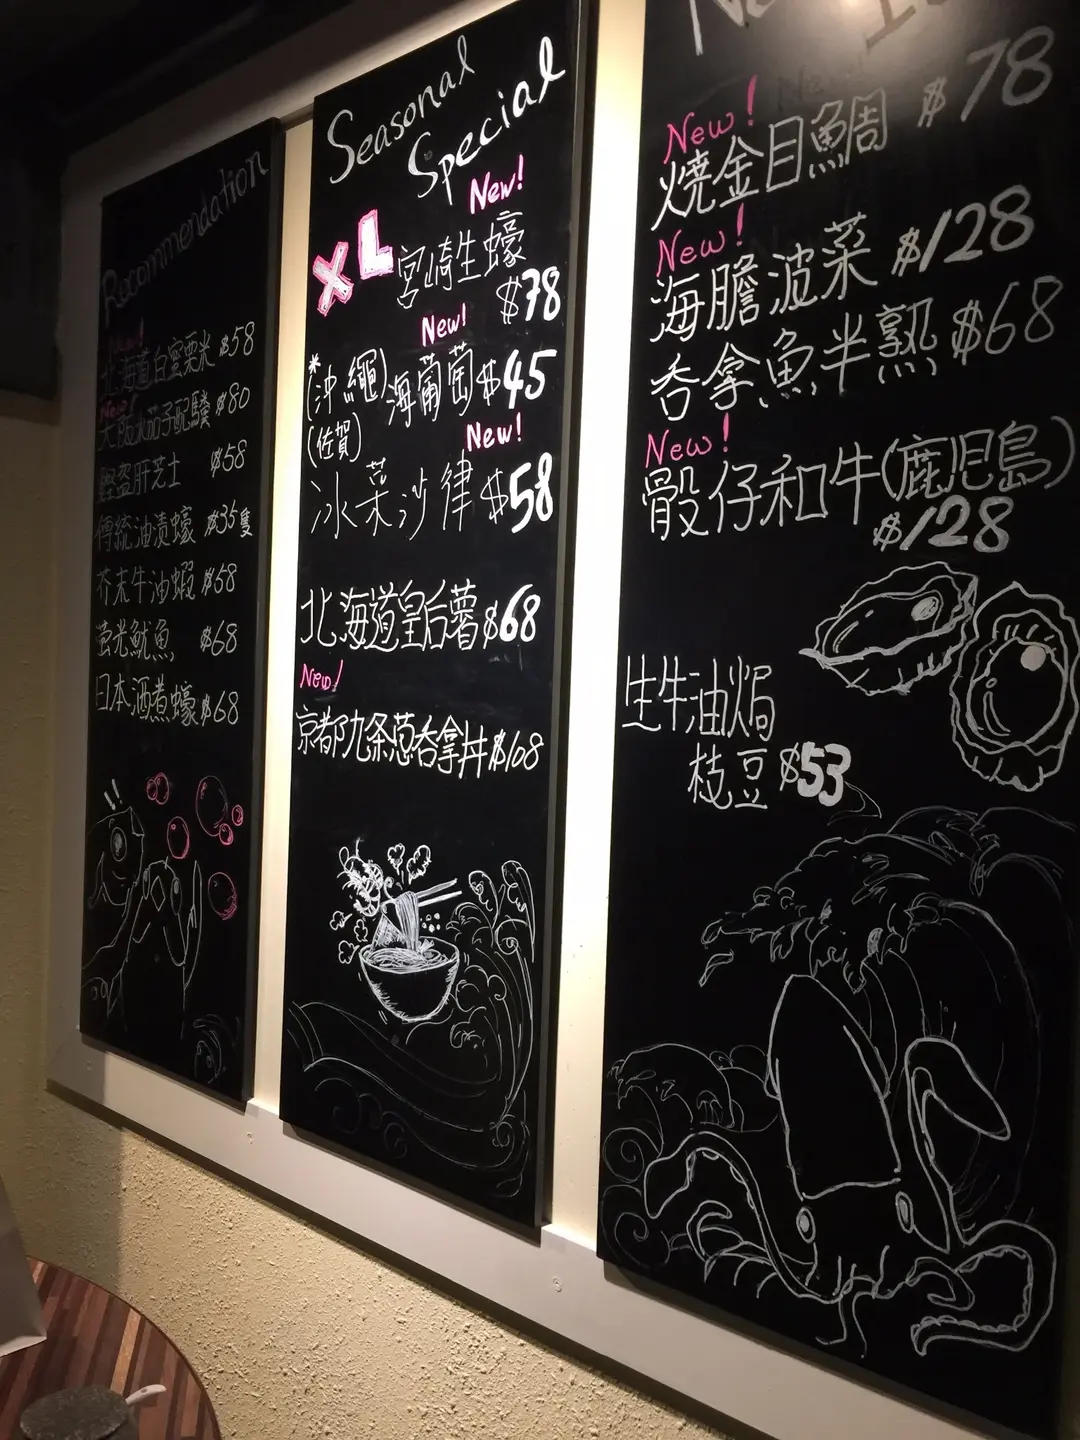 Recommendation
New!
北海道白蜜粟米 $58
New!
大阪水茄子配醬 $80
鰹盗肝芝士 $58
傳統油漬蠔 $35隻
芥末牛油蝦 $58
螢光魷魚 $68
日本酒煮蠔 $68
Seasonal
Special
New!
XL 宮崎生蠔
$78
New!
*(沖繩)海葡萄 $45
(佐賀)
New!
冰菜沙律 $58
北海道皇后薯 $68
New!
京都九条葱吞拿丼 $108
New!
燒金目鯛 $78
New!
海膽波菜 $128
吞拿魚半熟 $68
New!
骰仔和牛(鹿児島)
$128
生牛油焗
枝豆 $53